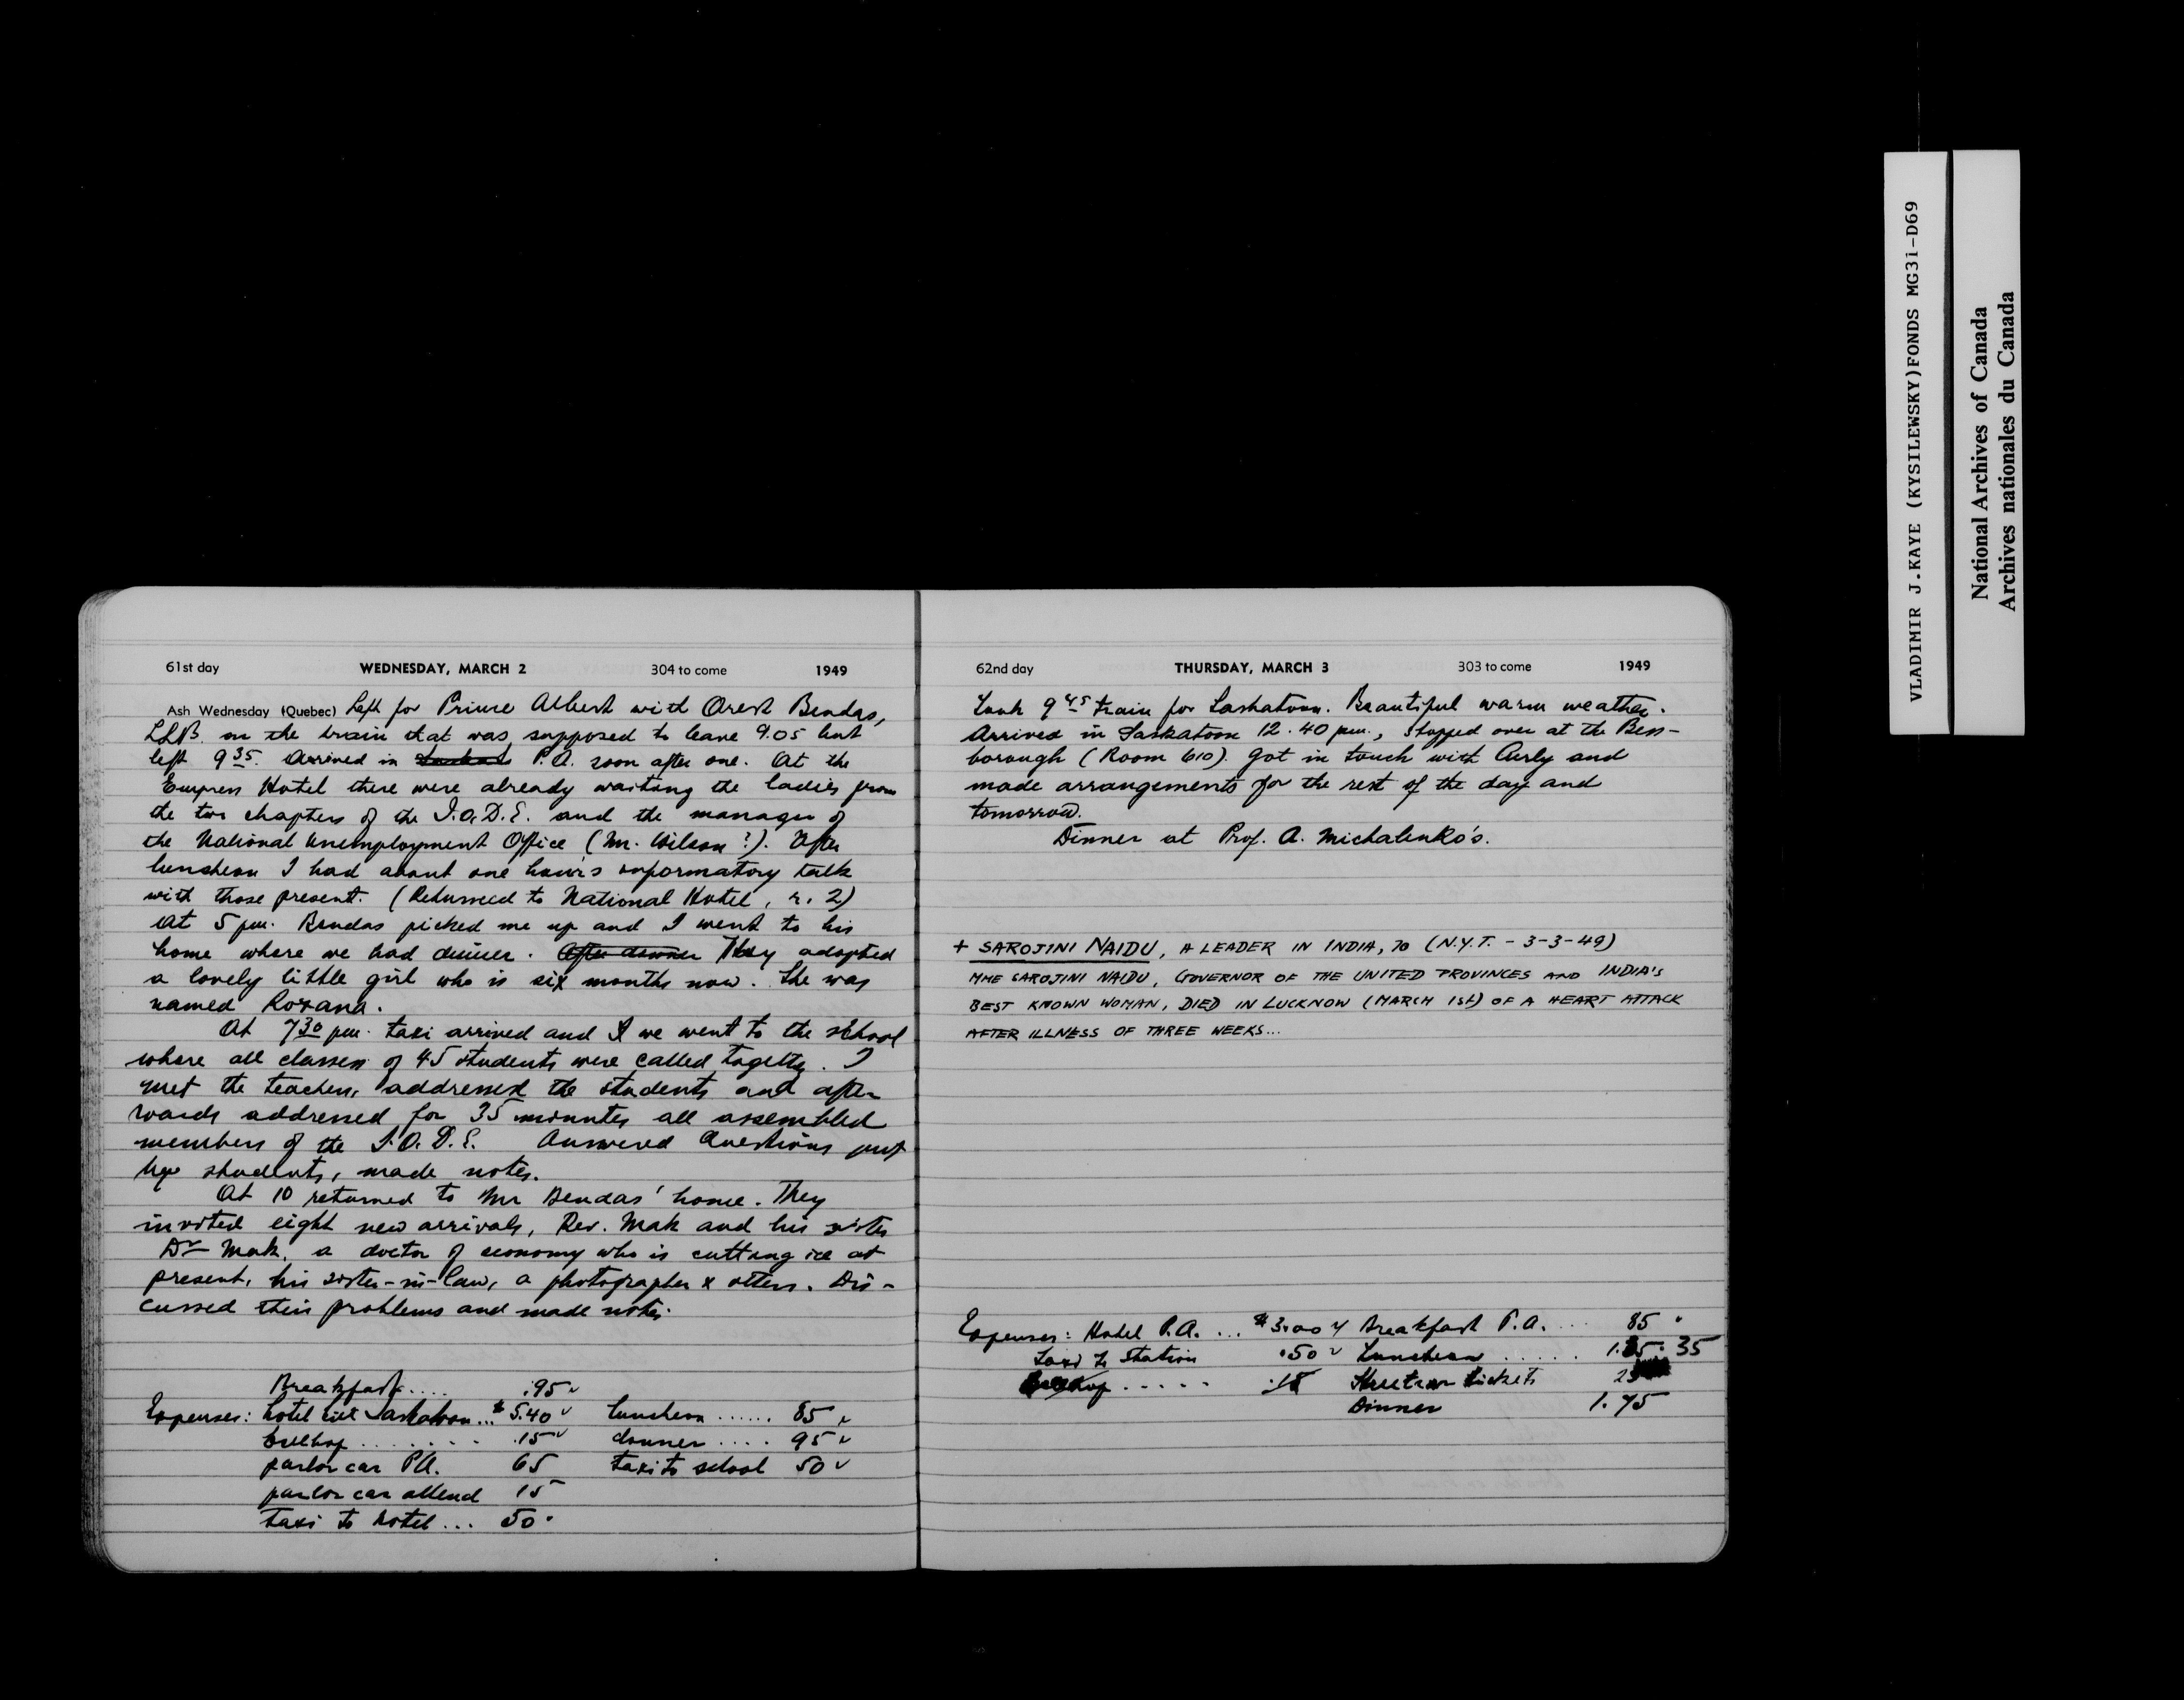 61st day WEDNESDAY, MARCH 2 304 to come 1949
Ash Wednesday (Quebec) Left for Prince Albert with Orest Bendas,
LLB. on the train that was supposed to leave 9.05 but
left 9 35. Arrived in P.A. soon after one. At the
Empress Hotel there were already waiting the ladies from
the two chapters of the I.O.D.E. and the manager of
the National Unemployment Office (Mr. Wilson?). After
luncheon I had about one hour's informatory talk
with those present. (Returned to National Hotel, r. 2)
At 5 pm. Bendas picked me up and I went to his
home where we had dinner. After dinner They adopted
a lovely little girl who is six months now. She was
named Roxana.
At 7 30 pm. taxi arrived and I we went to the school
where all classes of 45 students were called together. I
met the teachers, addressed the students and after
wards addressed for 35 minutes all assembled
members of the I.O.D.E. Answered Questions put
by students, made notes.
At 10 returned to Mr Bendas' home. They
invited eight new arrivals, Rev. Mak and his sister
Dr Mak, a doctor of economy who is cutting ice at
present, his sister-in-law, a photographer x others. Dis-
cussed their problems and made notes.
Breakfast.... .95
Expenses: hotel Saskatoon... $5.40 luncheon ...... 85
bellhop ....... .15 dinner .... 95
parlor car P.A. 65 taxi to school 50
parlor car attend 15
taxi to hotel ... 50.
62nd day THURSDAY, MARCH 3 303 to come 1949
Took 9 45 train for Saskatoon. Beautiful warm weather.
Arrived in Saskatoon 12.40 pm., stopped over at the Bess-
borough (Room 610). Got in touch with Curly and
made arrangements for the rest of the day and
tomorrow.
Dinner at Prof. A. Michalenko's.
+ SAROJINI NAIDU, A LEADER IN INDIA, 70 (N.Y.T. - 3-3-49)
MME SAROJINI NAIDU, GOVERNOR OF THE UNITED PROVINCES AND INDIA'S
BEST KNOWN WOMAN, DIED IN LUCKNOW (MARCH 1st) OF A HEART ATTACK
AFTER ILLNESS OF THREE WEEKS...
Expenses: Hotel P.A. ... $3.00 Breakfast P.A. ... 85
Taxi to Station .50 Luncheon ...... 1.35
Bellhop ..... .15 Streetcar tickets 25
Dinner 1.75
VLADIMIR J.KAYE (KYSILEWSKY)FONDS MG31-D69
National Archives of Canada
Archives nationales du Canada